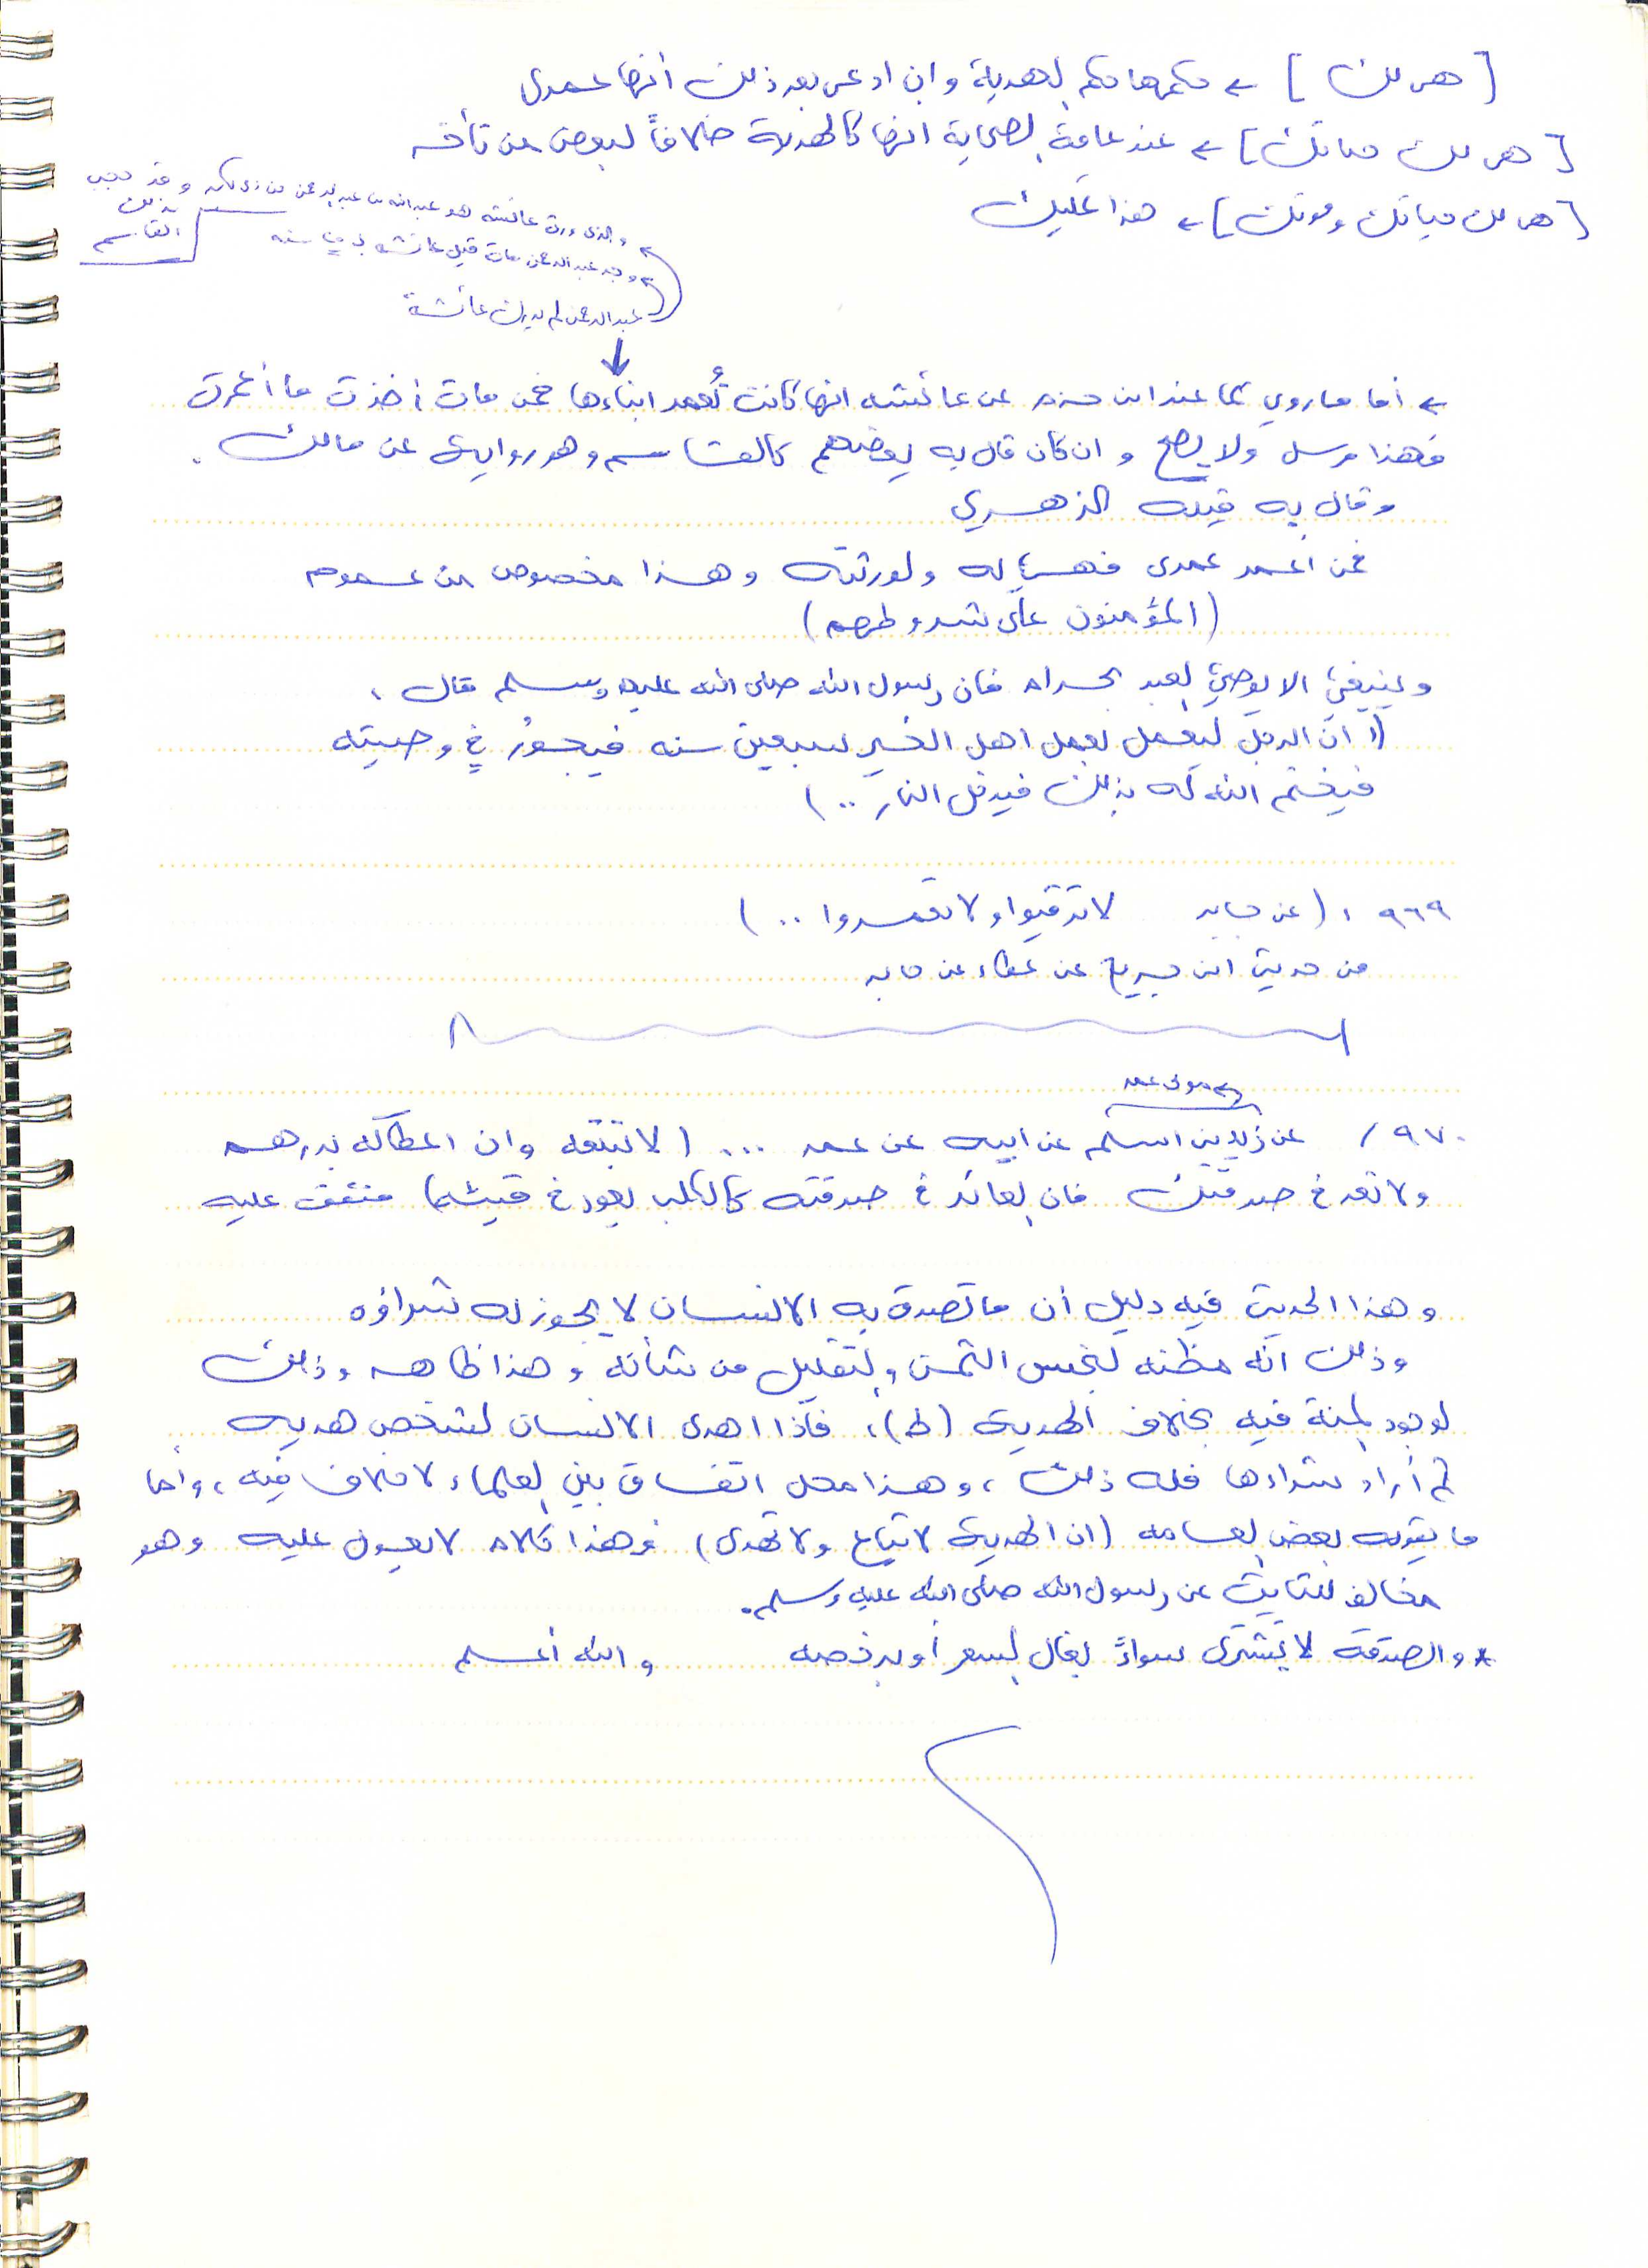 [هي لك] ← حكمها حكم الهدية وان ادعى بعد ذلك أنها عمرى
[هي لك حياتك] ← عند عامة الصحابة انها كالهدية خلافاً لبعض من تأخر
[هي لك حياتك وموتك] ← هذا تمليك
← والذي ورث عائشة هو عبدالله بن عبدالرحمن بن ابي بكر وقد حجب بذلك القاسم
← وجد عبدالرحمن مات قبل عائشة سنه
عبدالرحمن لم يدرك عائشة
← أما ما روي كما عند ابن حزم عن عائشه انها كانت تُعمر ابناءها فمن مات أخذت ما أعمرت
فهذا مرسل ولا يصح وان كان قال به بعضهم كالقاسم وهو رواية عن مالك .
وقال به قبله الزهري
فمن اعمر عمرى فهي له ولورثته وهذا مخصوص من عموم
(المؤمنون على شروطهم)
وينبغي الا يوصي العبد بحرام فان رسول الله صلى الله عليه وسلم قال :
(( ان الرجل ليعمل بعمل اهل الخير سبعين سنه فيجورُ في وصيته
فيختم الله له بذلك فيدخل النار .. )
٩٦٩ : (عن جابر لا ترقبوا ولا تعمروا .. )
من حديث ابن جريج عن عطاء عن جابر
← مولى عمر
٩٧٠ / عن زيد بن اسلم عن ابيه عن عمر ... ( لا تبتعه وان اعطاكه بدرهم
ولا تعد في صدقتك فان العائد في صدقته كالكلب يعود في قيئه) متفق عليه
وهذا الحديث فيه دليل أن ما تصدق به الانسان لا يجوز له شراؤه
وذلك انه مظنه لبخس الثمن والتقليل من شأنه وهذا ظاهر وذلك
لوجود المنة فيه بخلاف الهدية (ط)، فاذا اهدى الانسان لشخص هدية
ثم أراد شراءها فله ذلك ، وهذا محل اتفاق بين العلماء لا خلاف فيه ، وأما
ما يقوله بعض العامه (ان الهدية لا تباع ولا تهدى) فهذا كلام لا يعول عليه وهو
مخالف للثابت عن رسول الله صلى الله عليه وسلم .
* والصدقة لا تشترى سواءً بغال السعر أو برخصه والله أعلم